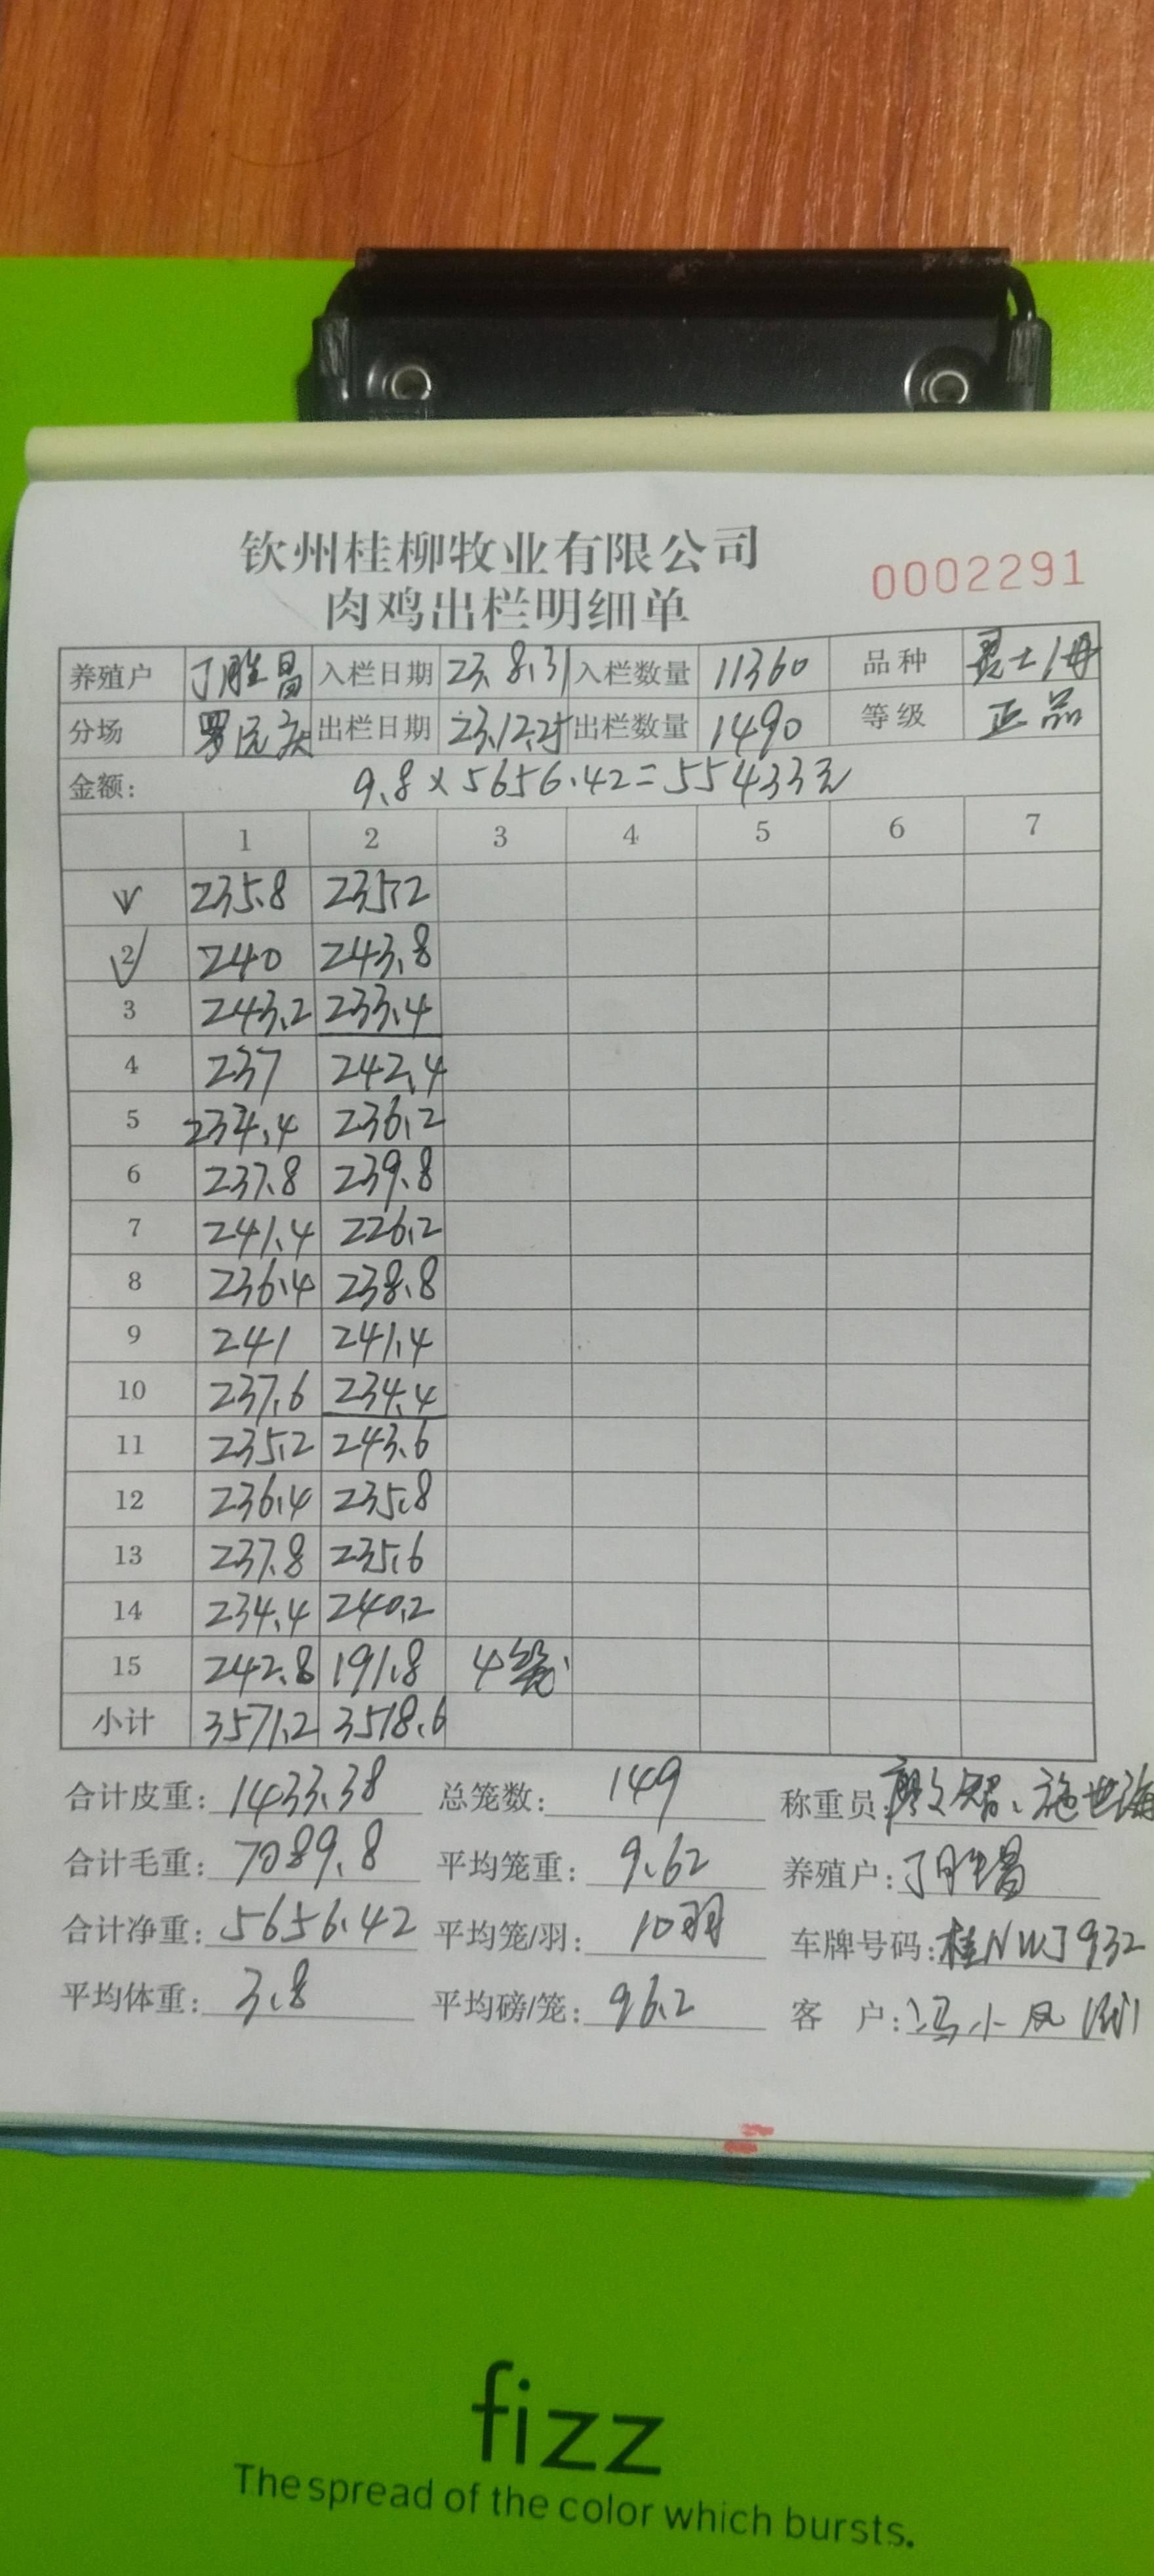 钦州桂柳牧业有限公司
0002291
肉鸡出栏明细单
养殖户 丁胜昌 入栏日期 23.8.31 入栏数量 11360 品种
分场 出栏日期 23.12.25 出栏数量 1490 等级 正品
金额: 9.8×5656.42=55433元
1 2 3 4 5 6 7
235.8 235.2
2 240 243.8
3 243.2 233.4
4 237 242.4
5 234.4 236.2
6 237.8 239.8
7 241.4 226.2
8 236.4 238.8
9 241 241.4
10 237.6 234.4
11 235.2 243.6
12 236.4 235.8
13 237.8 235.6
14 234.4 240.2
15 242.8 191.8 4笼
小计 3571.2 3518.6
合计皮重: 1433.38 总笼数: 149 称重员: 廖文智、施世海
合计毛重: 7089.8 平均笼重: 9.62 养殖户: 丁胜昌
合计净重: 5656.42 平均笼/羽: 10羽 车牌号码: 桂NWJ932
平均体重: 3.8 平均磅/笼: 96.2 客户: 冯小凤
fizz
The spread of the color which bursts.